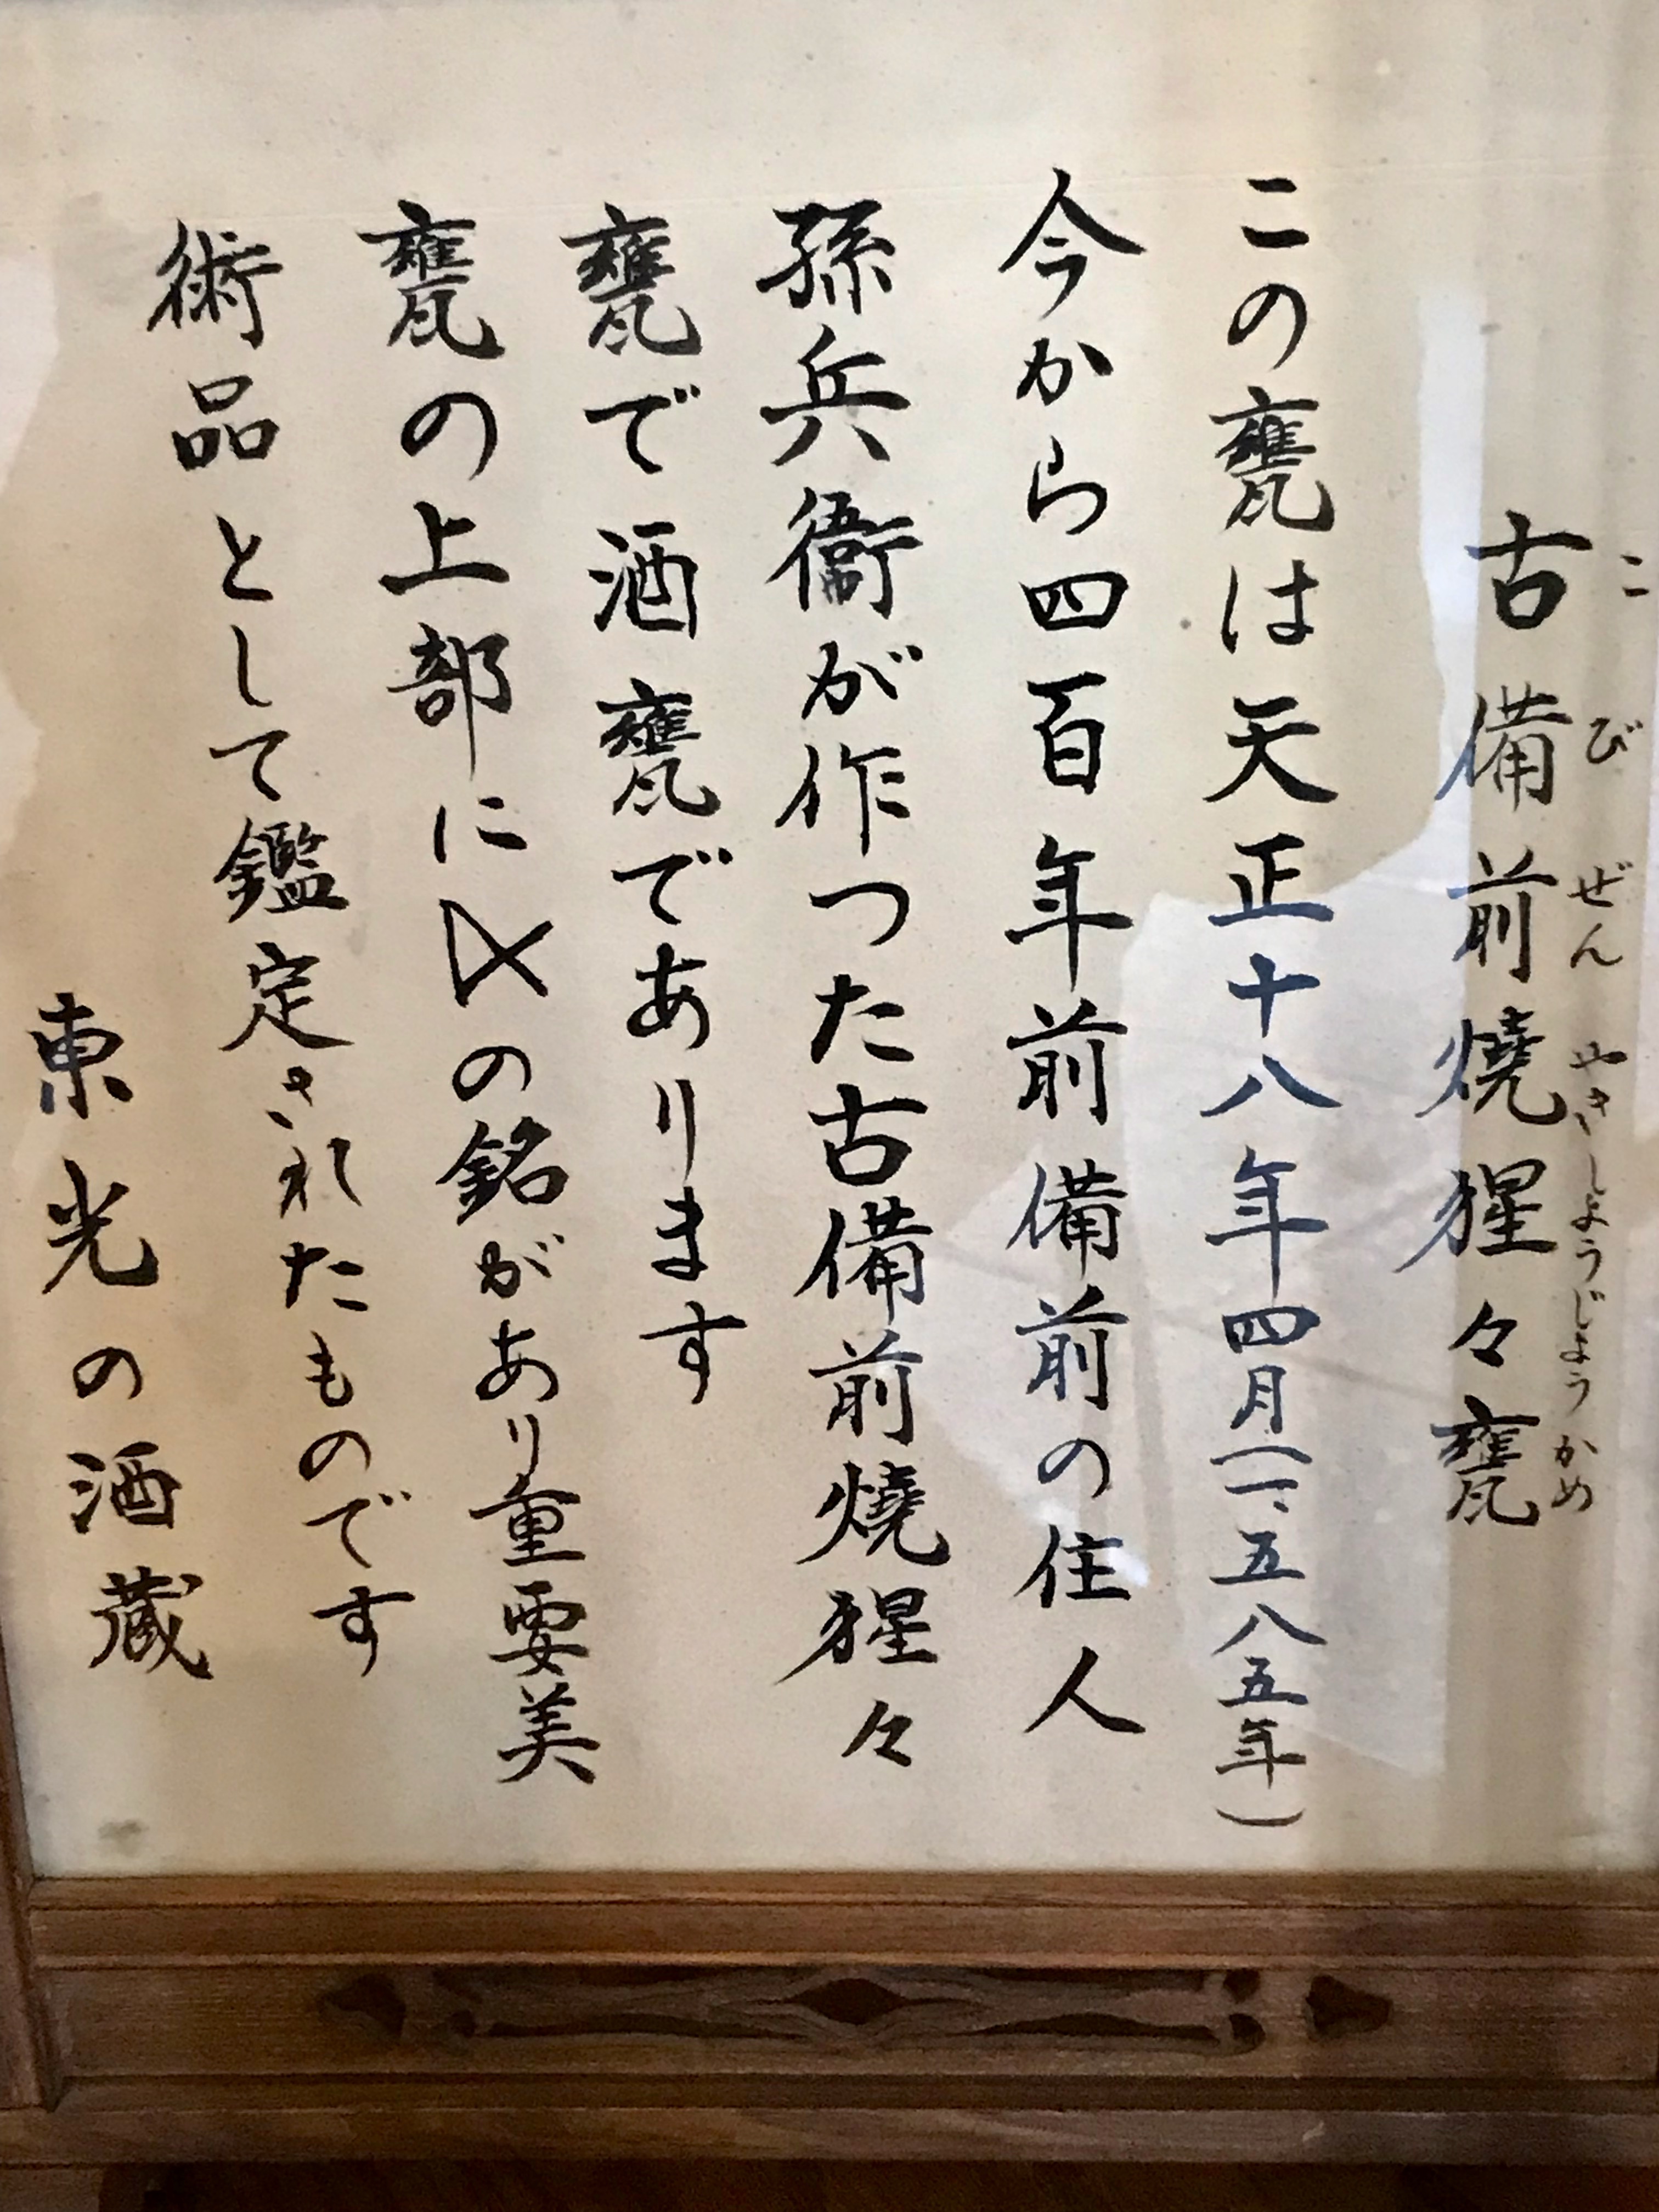 古備前焼猩々甕
こびぜんやきしょうじょうかめ
この甕は天正十八年四月(一、五八五年)
今から四百年前備前の住人
孫兵衞が作つた古備前燒猩々
甕で酒甕であります
甕の上部にの銘があり重要美
術品として鑑定されたものです
東光の酒蔵